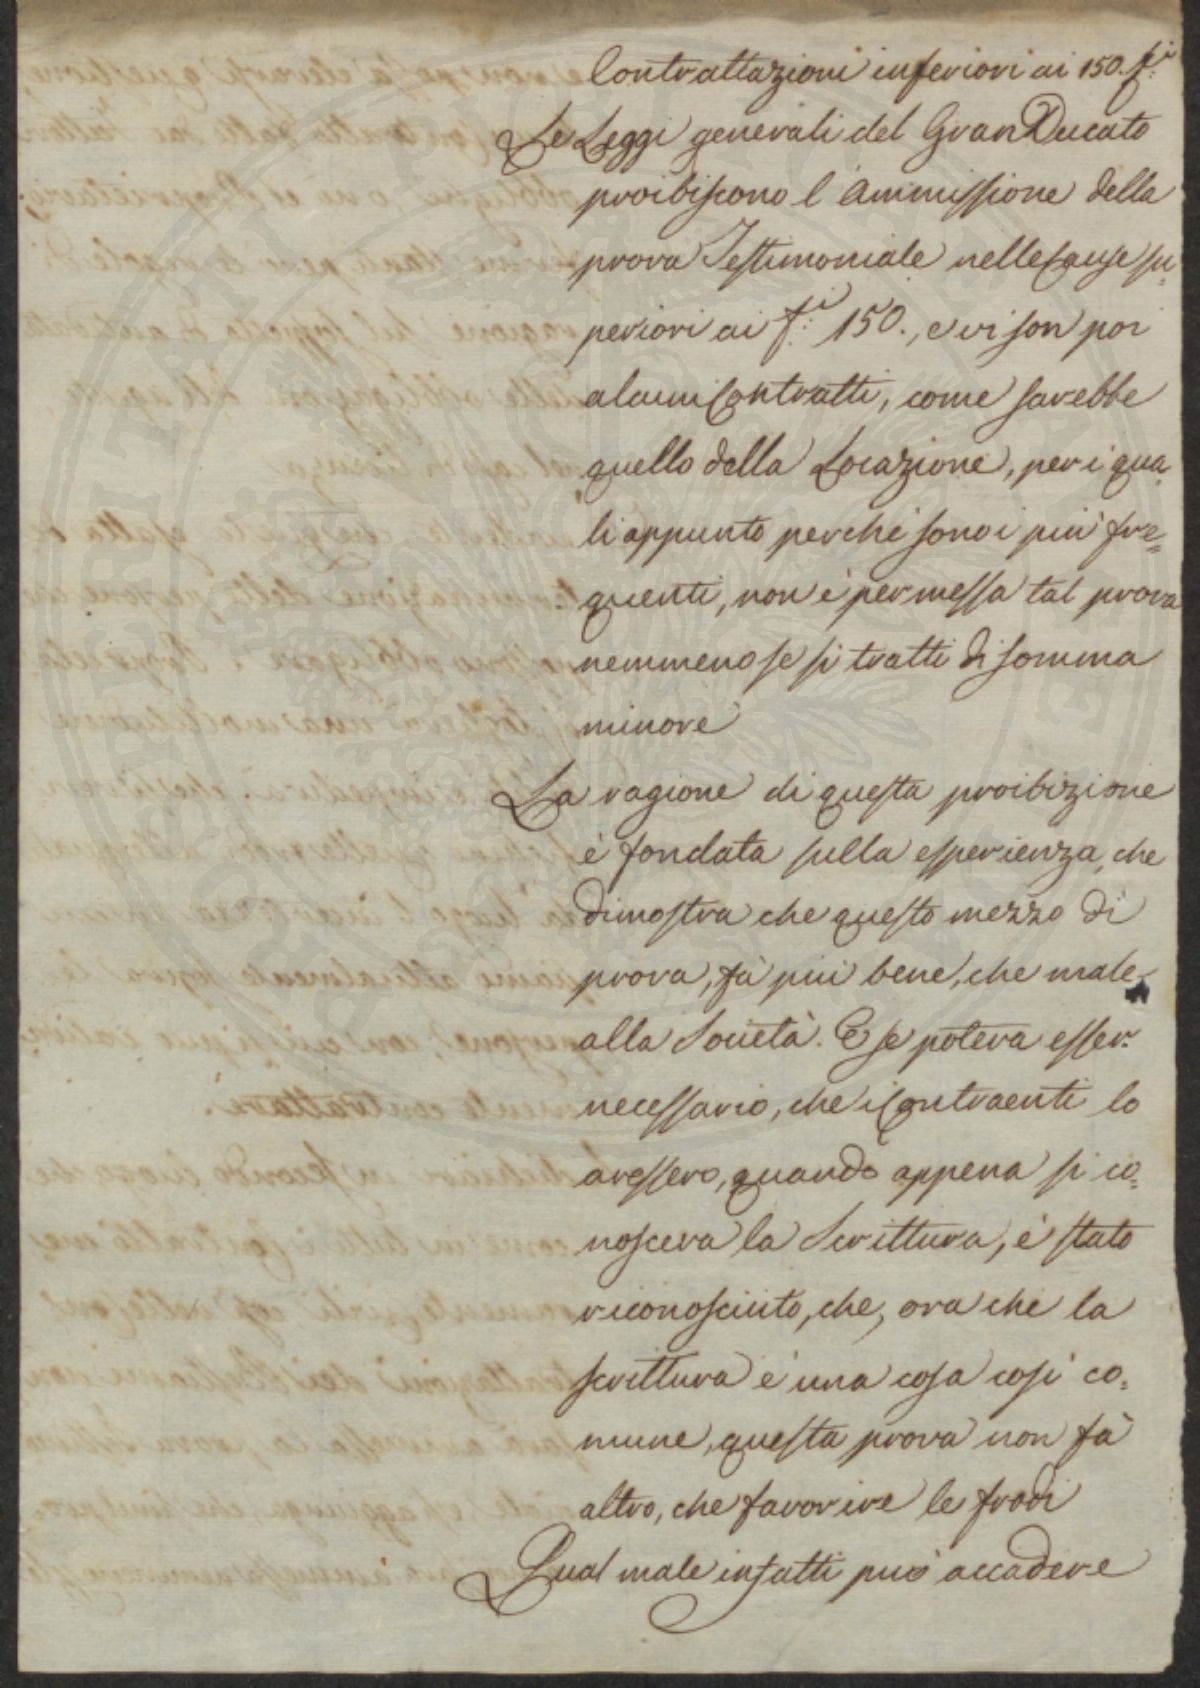 Contrattazioni inferiori ai 150. f.i
Le Leggi generali del Gran Ducato
proibiscono l'Ammissione della
prova Testimoniale nelle Cause su=
periori ai f.i 150., e vi son poi
alcuni Contratti, come sarebbe
quello della Locazione, per i qua=
li appunto perchè sono i più fre=
quenti, non è permessa tal prova
nemmeno se si tratti di somma
minore
La ragione di questa proibizione
è fondata sulla esperienza, che
dimostra che questo mezzo di
prova, fà più bene, che male
alla Società. E se poteva esser
necessario, che i Contraenti lo
avessero, quando appena si co=
nosceva la Scrittura, è stato
riconosciuto, che, ora che la
scrittura è una cosa così co=
mune, questa prova non fà
altro, che favorire le frodi
Qual male infatti può accadere